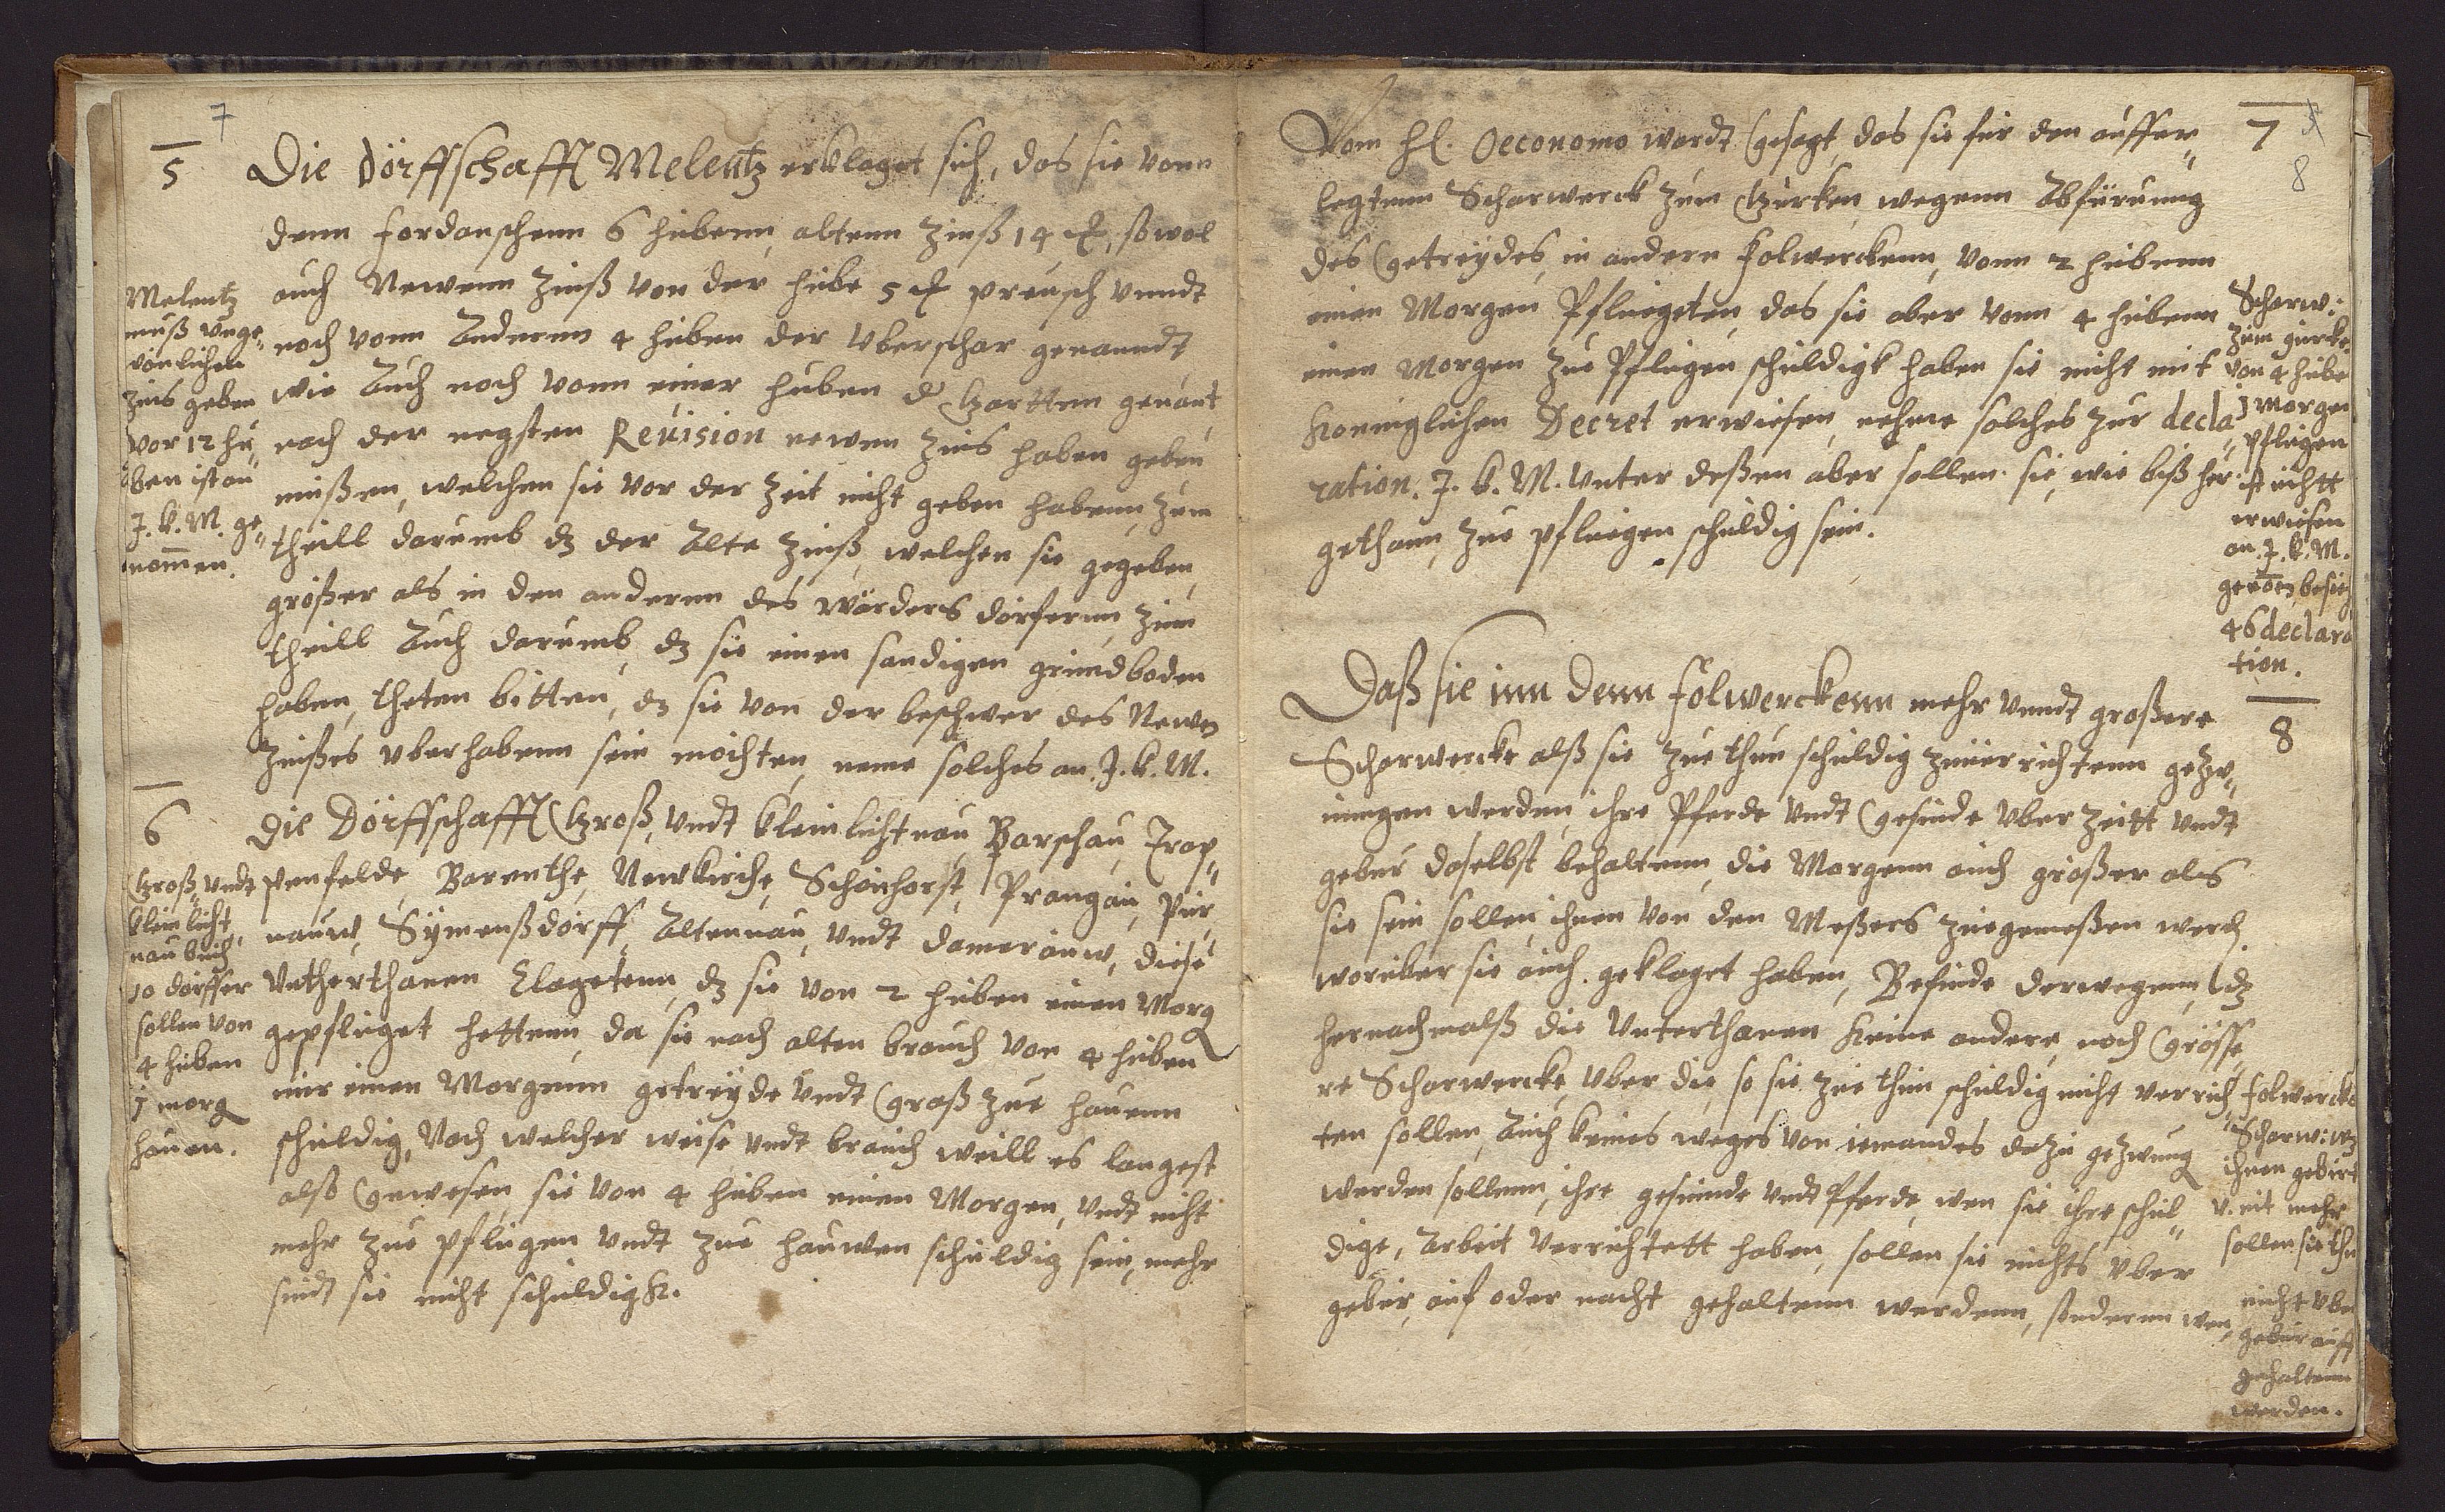 7
5
Die Dörffschafft Melentz erklaget sich, das sie vonn
denn fordanschenn 6 hubenn, altenn Zinß 14 fl, sowol
auch Newenn Zinß von der hube 5 fl preusch vnndt
noch vonn Anderenn 4 huben der Vberschar genanndt
wie Auch noch vonn einer huben d Gartten genant
nach der negsten Revision newen Zins haben geben
müßen, welchen sie vor der Zeit nicht geben habenn, zum
theill darumb dz der Alte Zinß, welchen sie gegeben,
größer als in den anderenn des Wärders dörferen, zum
theill Auch darumb, dz sie einen sandigen grundboden
haben, theten bitten, dz sie von der beschwer des Newen
Zinßes vberhabenn sein möchten, neme solches an J. K. M.
Melentz
muß unge
wonlichen
Zins geben
vor 12 hu
ben ist an
J. K. M. ge
nommen.
6
Die Dörffschafft Groß, vndt klein lichtnau, Barschau, Trap
penfelde, Barenthe, Newkirche, Schönhorst, Prangau, Pur
nauw, Symenßdorff, Altenau, vndt Damerauw, diese
Vntherthanen klagetenn, dz sie von 2 huben einen Morg
gepfluget hettenn, da sie nach alten brauch von 4 huben
nur einen Morgenn getreyde vndt Graß zue hauenn
schuldig, Nach welcher weise vndt brauch weill es langest
also gewesen, sie von 4 huben einen Morgen, vndt nicht
mehr zue pflugen vndt zue hauwen schuldig sein, mehr
sindt sie nicht schuldigk.
Groß vndt
klein licht
nau
10 dorffer
sollen von
4 huben
1 morg
hauen.
7
8
Vom H. Oeconomo wardt gesagt, das sie für den auffer
legtenn Scharwerck zum Gurken, wegenn Abfürung
des Getreydes, in andern folwerckenn, vonn 2 hubenn
einen Morgen Pfluegeten, das sie aber vonn 4 hubenn
einen Morgen zue Pflugen schuldigk haben sie nicht mit
Koeniglichen Decret erwiesen, nehme solches zur decla
ration. J. K. M. Vnter deßen aber sollen sie, wie biß her
gethann, zue pfluegen schuldig sein.
Scharw:
zum gurke
von 4 hube
1 Morgen
pflugen
nichtt
erwiesen
an J. K. M.
46 declara
tion.
8
Daß sie inn denn folwerckenn mehr vnndt großere
Scharwercke alß sie zue thun schuldig zuuerrichtenn gezw
ungen werden, ihre Pferde vndt Gesinde vber Zeitt vndt
gebur daselbst behaltenn, die Morgenn auch großer als
sie sein sollen, ihnen von den Meßers zuegemeßen werd
worüber sie auch geklaget haben, Befinde derwegenn, dz
hernachmalß die Vnterthanen keine andere, noch Grösse
re Scharwercke, vber die, so sie zue thun schuldig nicht verrich
ten sollen, Auch keines weges von iemandes dazu gezwung
werden sollenn, ihre gesinnde vndt Pferde, wen sie ihre schul
dige, Arbeit verrichtett haben, sollen sie nichts vber
gebür, auf oder nacht gehaltenn werdenn, sonderenn wen,
folwercks
Scharw: wz
ihnen gebürt
v. nit mehr
sollen sie thu
nicht vber
gebur auff
gehaltenn
werden.